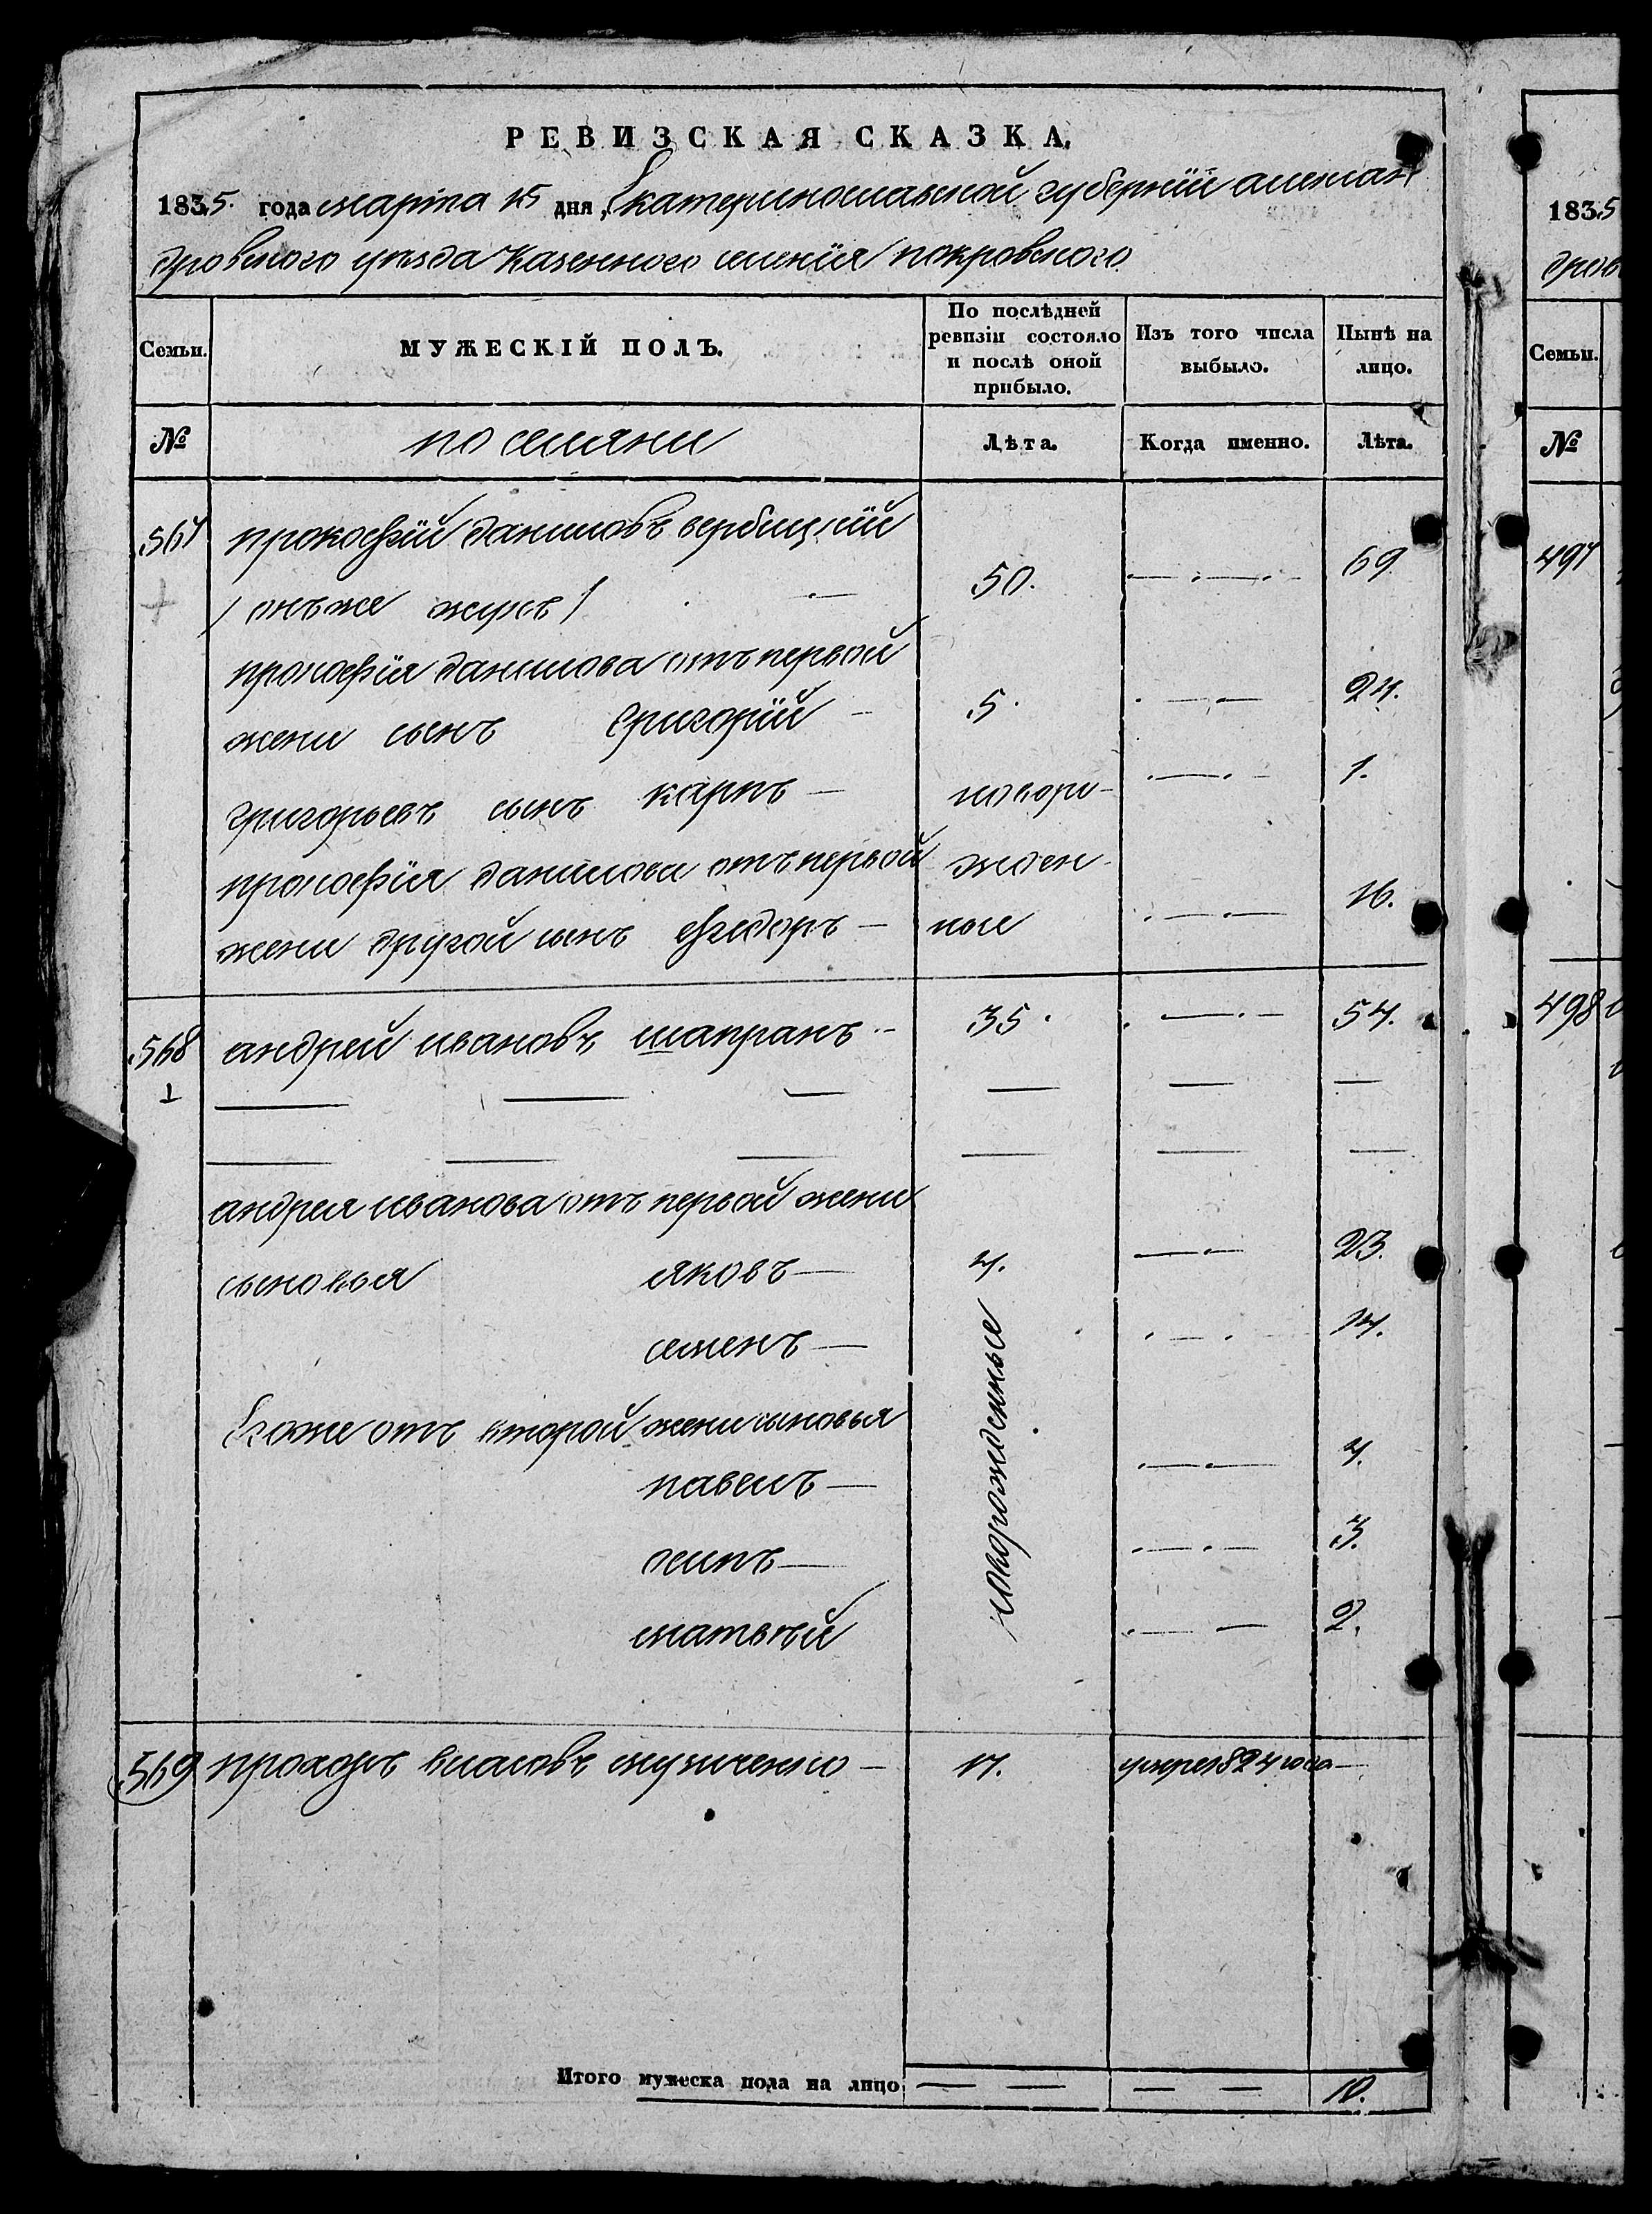 РЕВИЗСКАЯ СКАЗКА.
1835. года марта 15 дня, Екатеринославской губернїи александ
дровского уѣзда Казенного селенїя покровского
Семьи. МУЖЕСКІЙ ПОЛЪ. По послѣдней ревизіи состояло и послѣ оной прибыло. Изъ того числа выбыло. Нынѣ на лицо.
№ поселяни Лѣта. Когда именно. Лѣта.
567 прокофїй даниловъ вербицкїй
/ онъже жукъ / 50. 69
прокофїя данилова отъ первой
жени сынъ Григорїй 5. 24.
григорьевъ сынъ карпъ новоро- 1.
прокофїя данилова отъ первой жден-
жени другой сынъ Ѳедоръ ные 16.
568 андрей ивановъ шапранъ 35. 54.
1
андрея иванова отъ первой жени
сыновья яковъ 4. 23.
семенъ новорожденные 14.
Егоже отъ второй жени сыновья
павелъ 4.
осипъ 3.
матвѣй 2.
569 прохоръ власовъ 17. умере 1824 года
Итого мужеска пола на лицо 10.
1835
дров
Семьи.
№
497
498